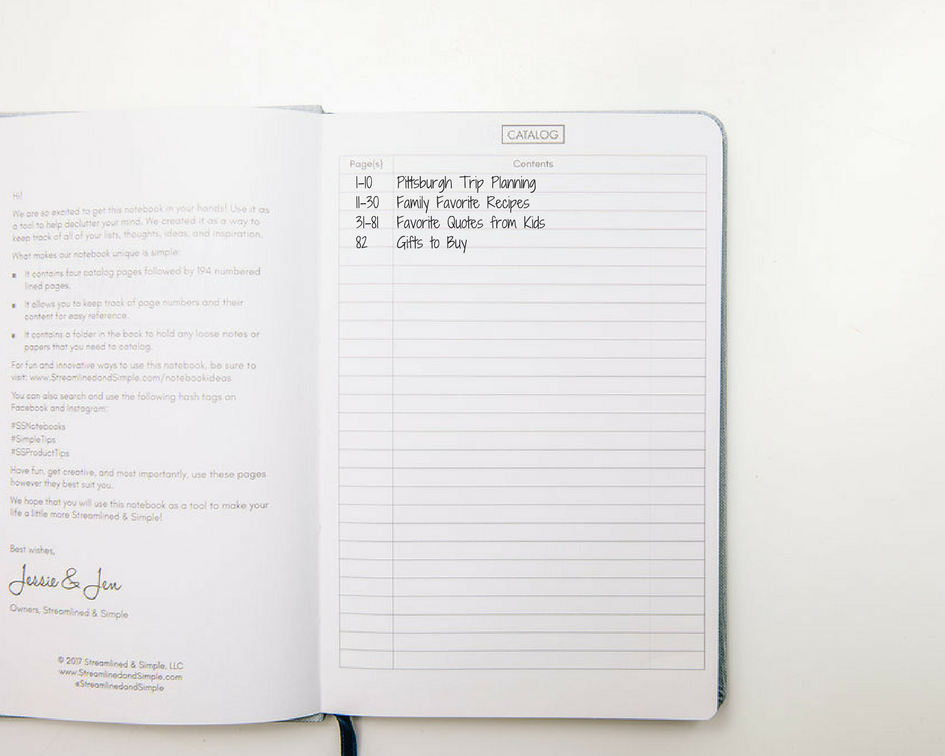 Hi!
We are so excited to get this notebook in your hands! Use it as
a tool to help declutter your mind. We created it as a way to
keep track of all of your lists, thoughts, ideas, and inspiration.
What makes our notebook unique is simple:
▪ It contains four catalog pages followed by 194 numbered
lined pages.
▪ It allows you to keep track of page numbers and their
content for easy reference.
▪ It contains a folder in the back to hold any loose notes or
papers that you need to catalog.
For fun and innovative ways to use this notebook, be sure to
visit: www.StreamlinedandSimple.com/notebookideas
You can also search and use the following hash tags on
Facebook and Instagram:
#SSNotebooks
#SimpleTips
#SSProductTips
Have fun, get creative, and most importantly, use these pages
however they best suit you.
We hope that you will use this notebook as a tool to make your
life a little more Streamlined & Simple!
Best wishes,
Jessie & Jen
Owners, Streamlined & Simple
© 2017 Streamlined & Simple, LLC
www.StreamlinedandSimple.com
@StreamlinedandSimple
CATALOG
Page(s) Contents
1-10 Pittsburgh Trip Planning
11-30 Family Favorite Recipes
31-81 Favorite Quotes from Kids
82 Gifts to Buy